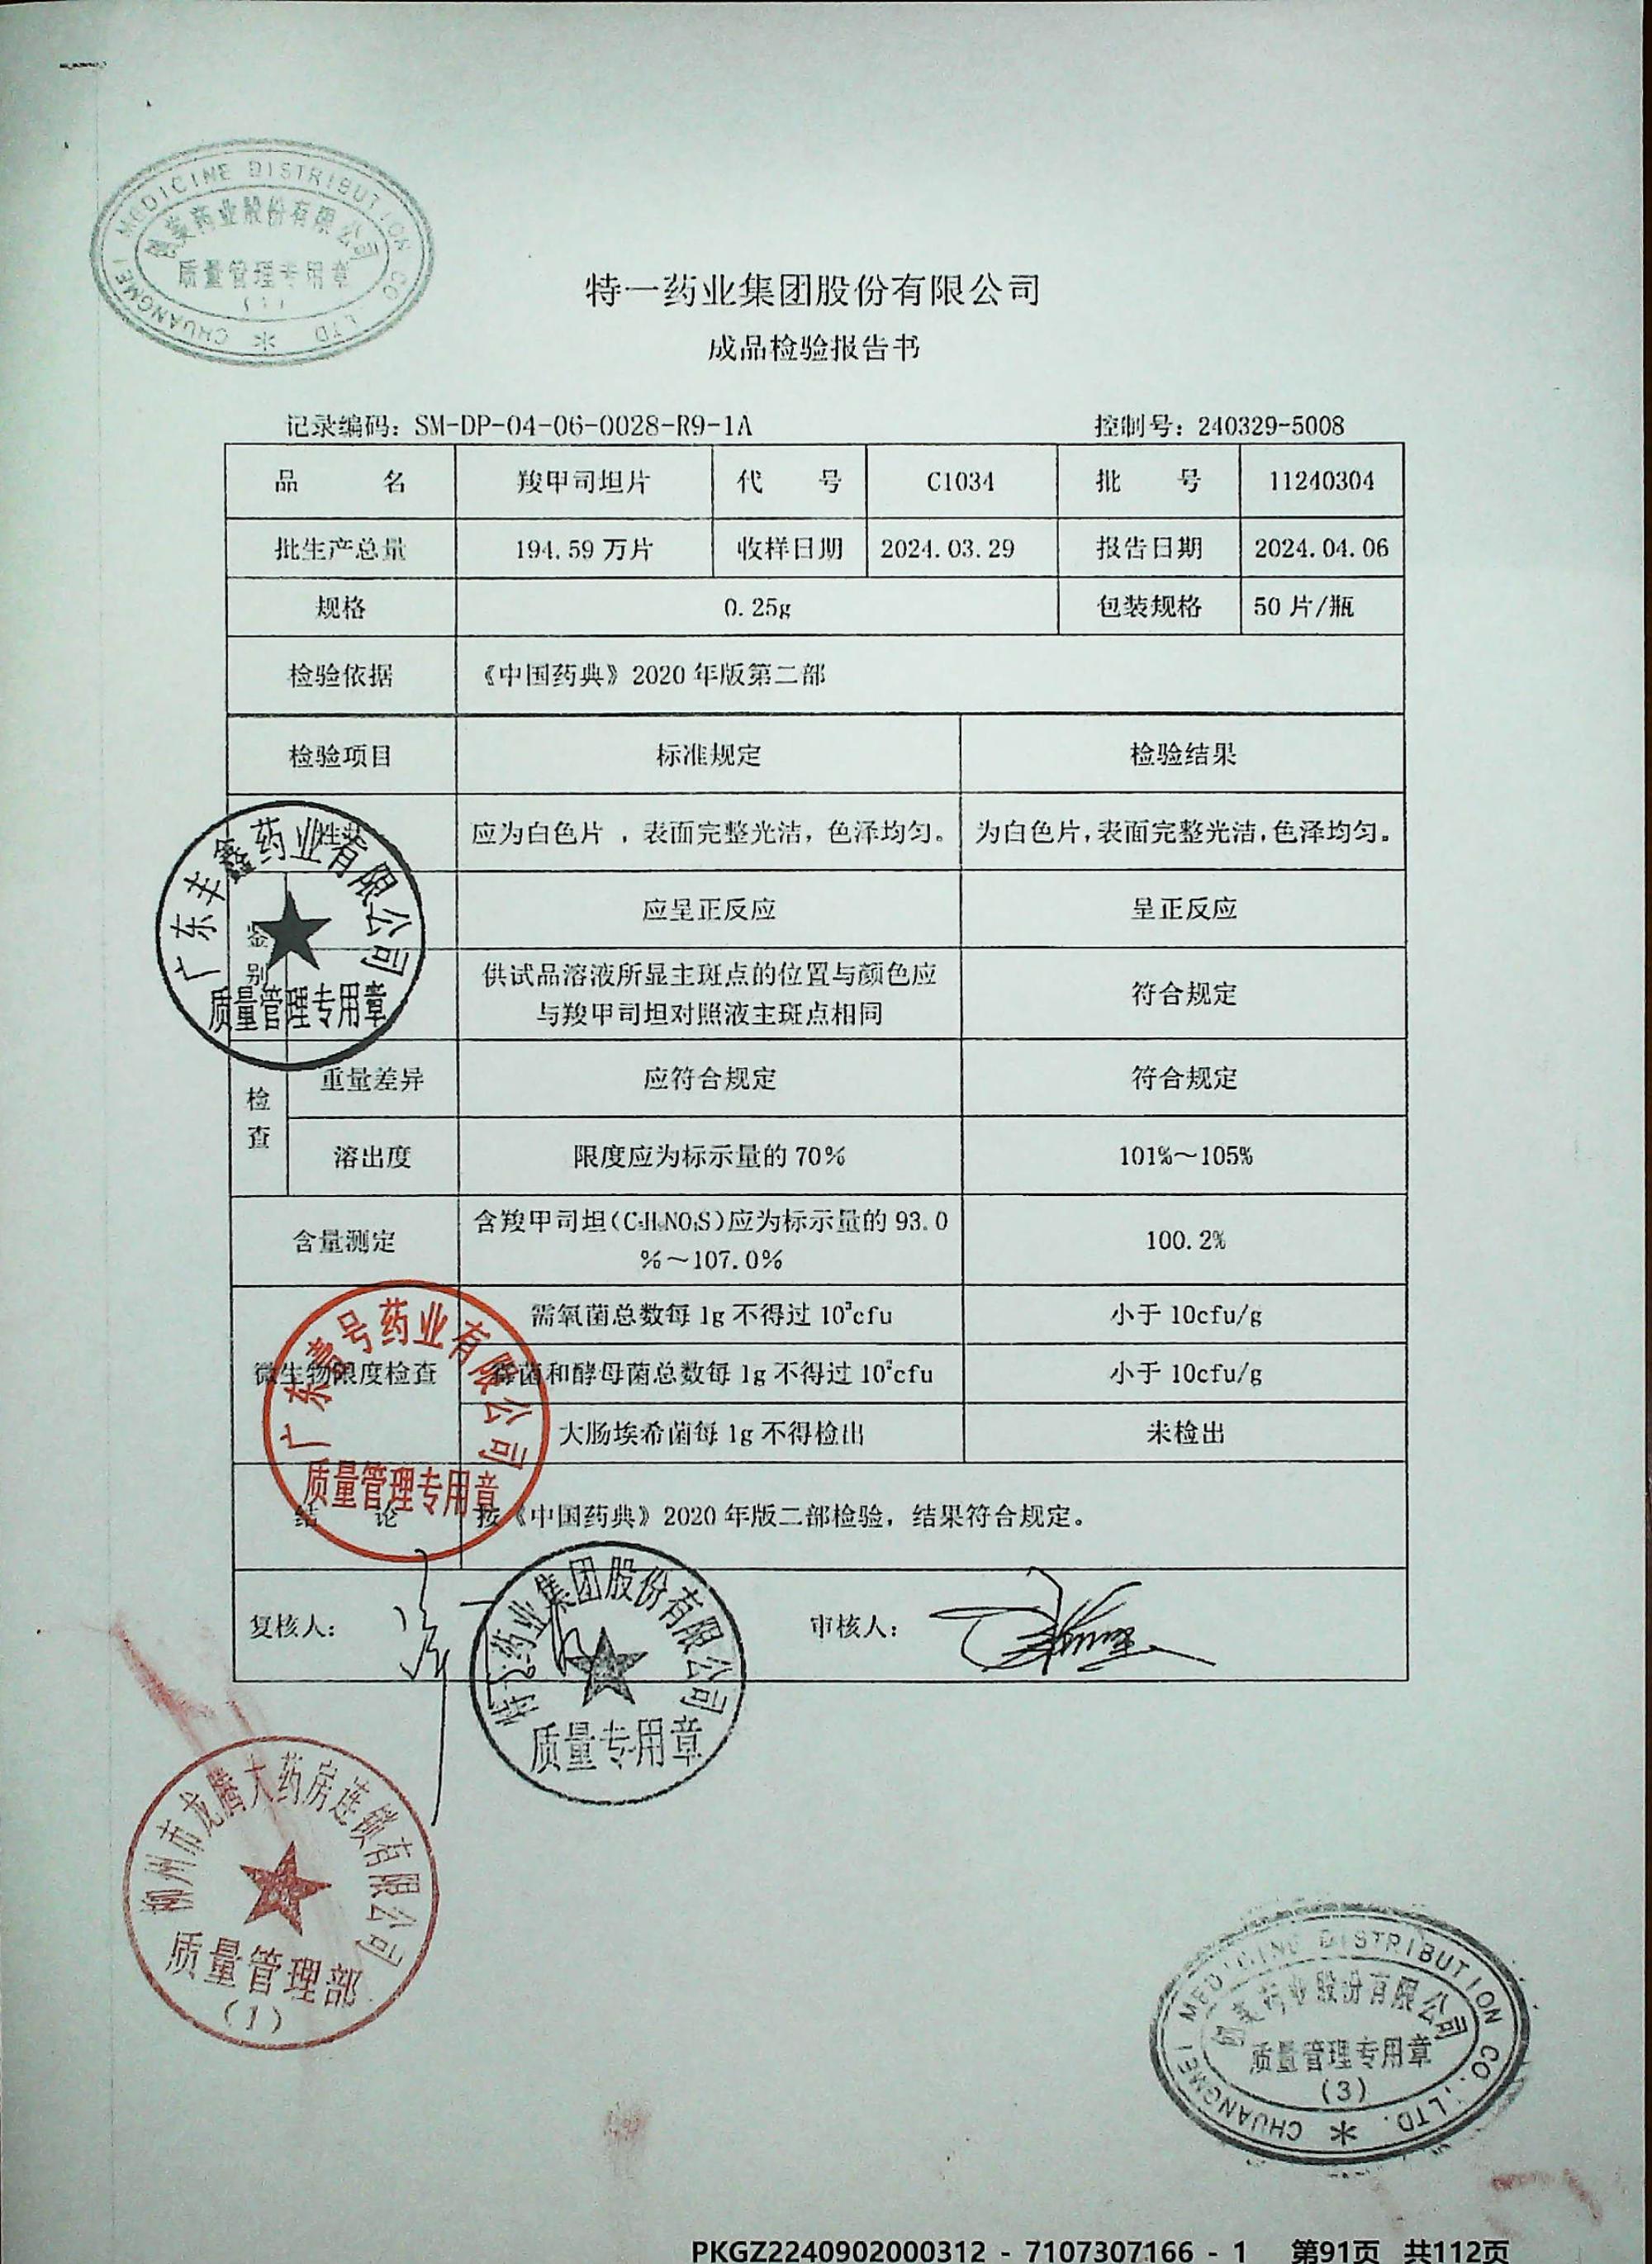 MEDICINE DISTRIBUTION CO LTD * CHUANGMEI
药业股份有限公司
质量管理专用章
(1)
特一药业集团股份有限公司
成品检验报告书
记录编码：SM-DP-04-06-0028-R9-1A 控制号：240329-5008
品 名 羧甲司坦片 代 号 C1034 批 号 11240304
批生产总量 194.59 万片 收样日期 2024.03.29 报告日期 2024.04.06
规格 0.25g 包装规格 50 片/瓶
检验依据 《中国药典》2020 年版第二部
检验项目 标准规定 检验结果
性 应为白色片，表面完整光洁，色泽均匀。 为白色片，表面完整光洁，色泽均匀。
鉴别 应呈正反应 呈正反应
供试品溶液所显主斑点的位置与颜色应 符合规定
与羧甲司坦对照液主斑点相同
广东丰鑫药业有限公司
质量管理专用章
检查 重量差异 应符合规定 符合规定
溶出度 限度应为标示量的 70% 101%～105%
含量测定 含羧甲司坦(C₅H₉NO₄S)应为标示量的 93.0 100.2%
%～107.0%
微生物限度检查 需氧菌总数每 1g 不得过 10³cfu 小于 10cfu/g
霉菌和酵母菌总数每 1g 不得过 10²cfu 小于 10cfu/g
大肠埃希菌每 1g 不得检出 未检出
号药业有限公司
质量管理专用章
结 论 按《中国药典》2020 年版二部检验，结果符合规定。
复核人： 审核人：
特一药业集团股份有限公司
质量专用章
柳州市龙腾大药房连锁有限公司
质量管理部
(1)
MEDICINE DISTRIBUTION CO.,LTD. * CHUANGMEI
药业股份有限公司
质量管理专用章
(3)
PKGZ2240902000312 - 7107307166 - 1 第91页 共112页